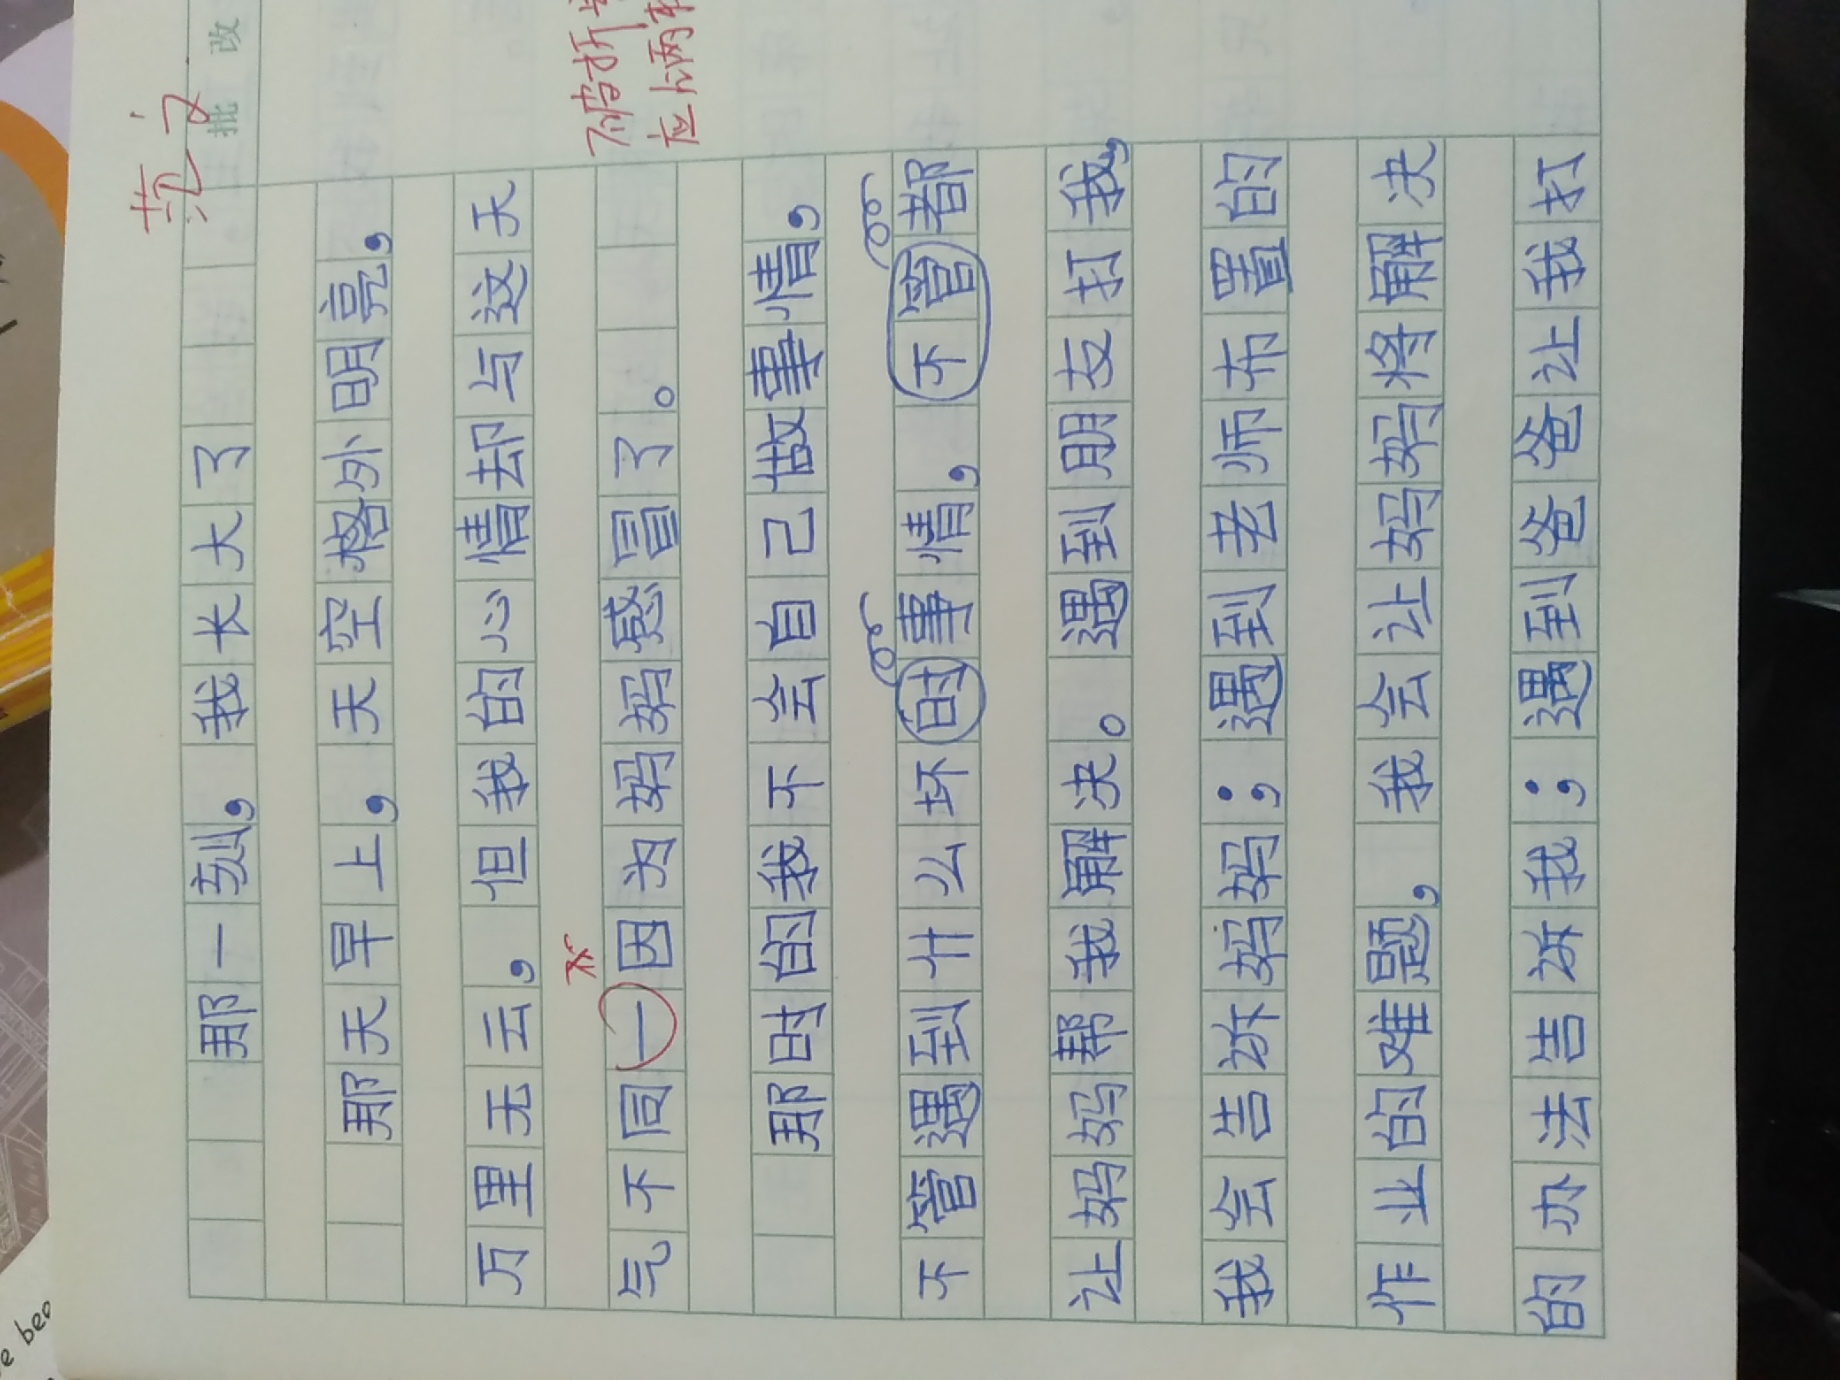 范文
批改
那一刻，我长大了
那天早上，天空格外明亮，
万里无云，但我的心情却与这天
气不同一因为妈妈感冒了。
那时的我不会自己做事情，
不管遇到什么坏时事情，不管都
让妈妈帮我解决。遇到朋友打我，
我会告诉妈妈；遇到老师布置的
作业的难题，我会让妈妈将解决
的办法告诉我；遇到爸爸让我打